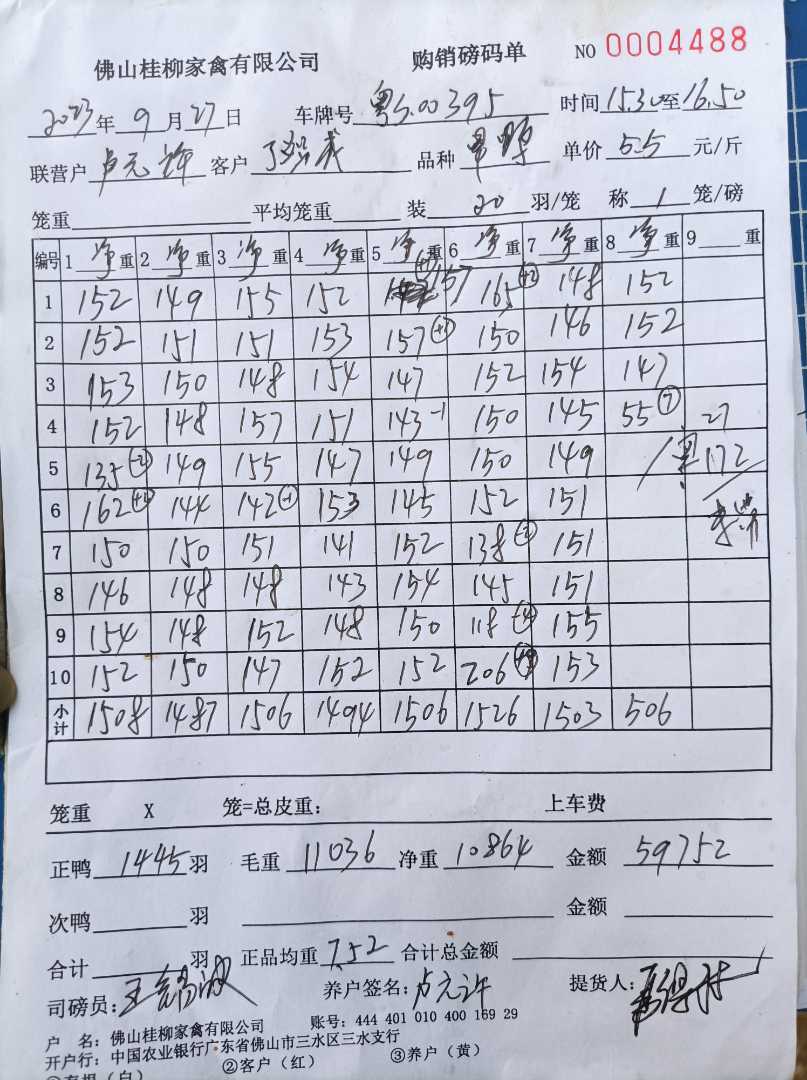 佛山桂柳家禽有限公司 购销磅码单 NO 0004488
2023年 9 月 27 日 车牌号 粤S.00395 时间 15.30 至 16.50
联营户 卢元许 客户 品种 单价 5.5 元/斤
笼重 平均笼重 装 20 羽/笼 称 1 笼/磅
编号 1 净 重 2 净 重 3 净 重 4 净 重 5 净 重 6 净 重 7 净 重 8 净 重 9 重
1 152 149 155 152 157 165 (+2) 148 152
2 152 151 151 153 157 (+1) 150 146 152
3 153 150 148 154 147 152 154 147
4 152 148 157 151 143 -1 150 145 55 (7) 27
5 135 (-2) 149 155 147 149 150 149 172
6 162 (+2) 144 142 (-1) 153 145 152 151
7 150 150 151 141 152 138 151
8 146 148 148 143 154 145 151
9 154 148 152 148 150 118 (-4) 155
10 152 150 147 152 152 206 153
小计 1508 1487 1506 1494 1506 1526 1503 506
笼重 X 笼=总皮重: 上车费
正鸭 1445 羽 毛重 11036 净重 10864 金额 59752
次鸭 羽 金额
合计 羽 正品均重 7.52 合计总金额
司磅员: 养户签名: 卢元许 提货人:
户 名: 佛山桂柳家禽有限公司 账号: 444 401 010 400 169 29
开户行: 中国农业银行广东省佛山市三水区三水支行
①存根(白) ②客户(红) ③养户(黄)